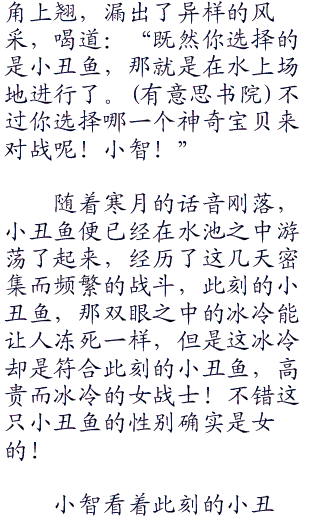 角上翘，漏出了异样的风
采，喝道：“既然你选择的
是小丑鱼，那就是在水上场
地进行了。(有意思书院)不
过你选择哪一个神奇宝贝来
对战呢！小智！”
随着寒月的话音刚落，
小丑鱼便已经在水池之中游
荡了起来，经历了这几天密
集而频繁的战斗，此刻的小
丑鱼，那双眼之中的冰冷能
让人冻死一样，但是这冰冷
却是符合此刻的小丑鱼，高
贵而冰冷的女战士！不错这
只小丑鱼的性别确实是女
的！
小智看着此刻的小丑